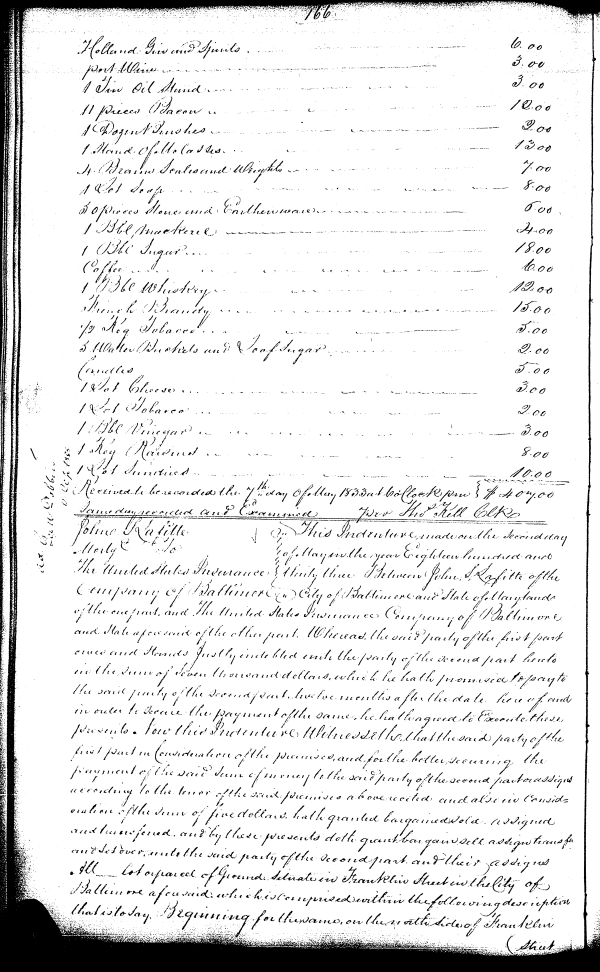 166
Holland Gin and Spirits 6.00
port Wine 3.00
1 Tin Oil Stand 3.00
11 pieces Bacon 12.00
1 Dozen Brushes 2.00
1 Stand of Molasses 13.00
4 Beams Scales and Weights 7.00
1 Lot Soap 8.00
50 pieces Stone and Earthenware 5.00
1 Bbl Mackerel 4.00
1 Bbl Sugar 18.00
Coffee 6.00
1 Bbl Whiskey 12.00
French Brandy 15.00
1/2 Keg Tobacco 5.00
5 Water Buckets and Loaf Sugar 2.00
Candles 5.00
1 Lot Cheese 3.00
1 Lot Tobacco 2.00
1 Bbl Vinegar 3.00
1 Keg Raisins 8.00
1 Lot Sundries 10.00
Received to be recorded the 7th day of May 1833 at 6 oClock pm $407.00
Same day recorded and Examined per Thos Kell Clk
John S Lafitte This Indenture, made on the second day
Mortg To of May in the year Eighteen hundred and
The United States Insurance thirty three Between John S. Lafitte of the
Company of Baltimore City of Baltimore and State of Maryland
of the one part, and The United States Insurance Company of Baltimore
and State aforesaid of the other part. Whereas, the said party of the first part
owes and Stands Justly indebted unto the party of the second part hereto
in the sum of seven thousand dollars, which he hath promised to pay to
the said party of the second part, twelve months after the date hereof and
in order to secure the payment of the same, he hath agreed to Execute these
presents. Now this Indenture Witnesseth, that the said party of the
first part in Consideration of the premises, and for the better securing the
payment of the said sum of money to the said party of the second part or assigns
according to the tenor of the said premises above recited and also in Consid=
eration of the sum of five dollars. hath granted bargained sold assigned
and transfered. and by these presents doth grant bargain sell assign transfer
and set over, unto the said party of the second part and their assigns
All lot or parcel of Ground situate in Franklin Street in the City of
Baltimore aforesaid which is comprised within the following description
that is to say. Beginning for the same, on the north side of Franklin
(Street